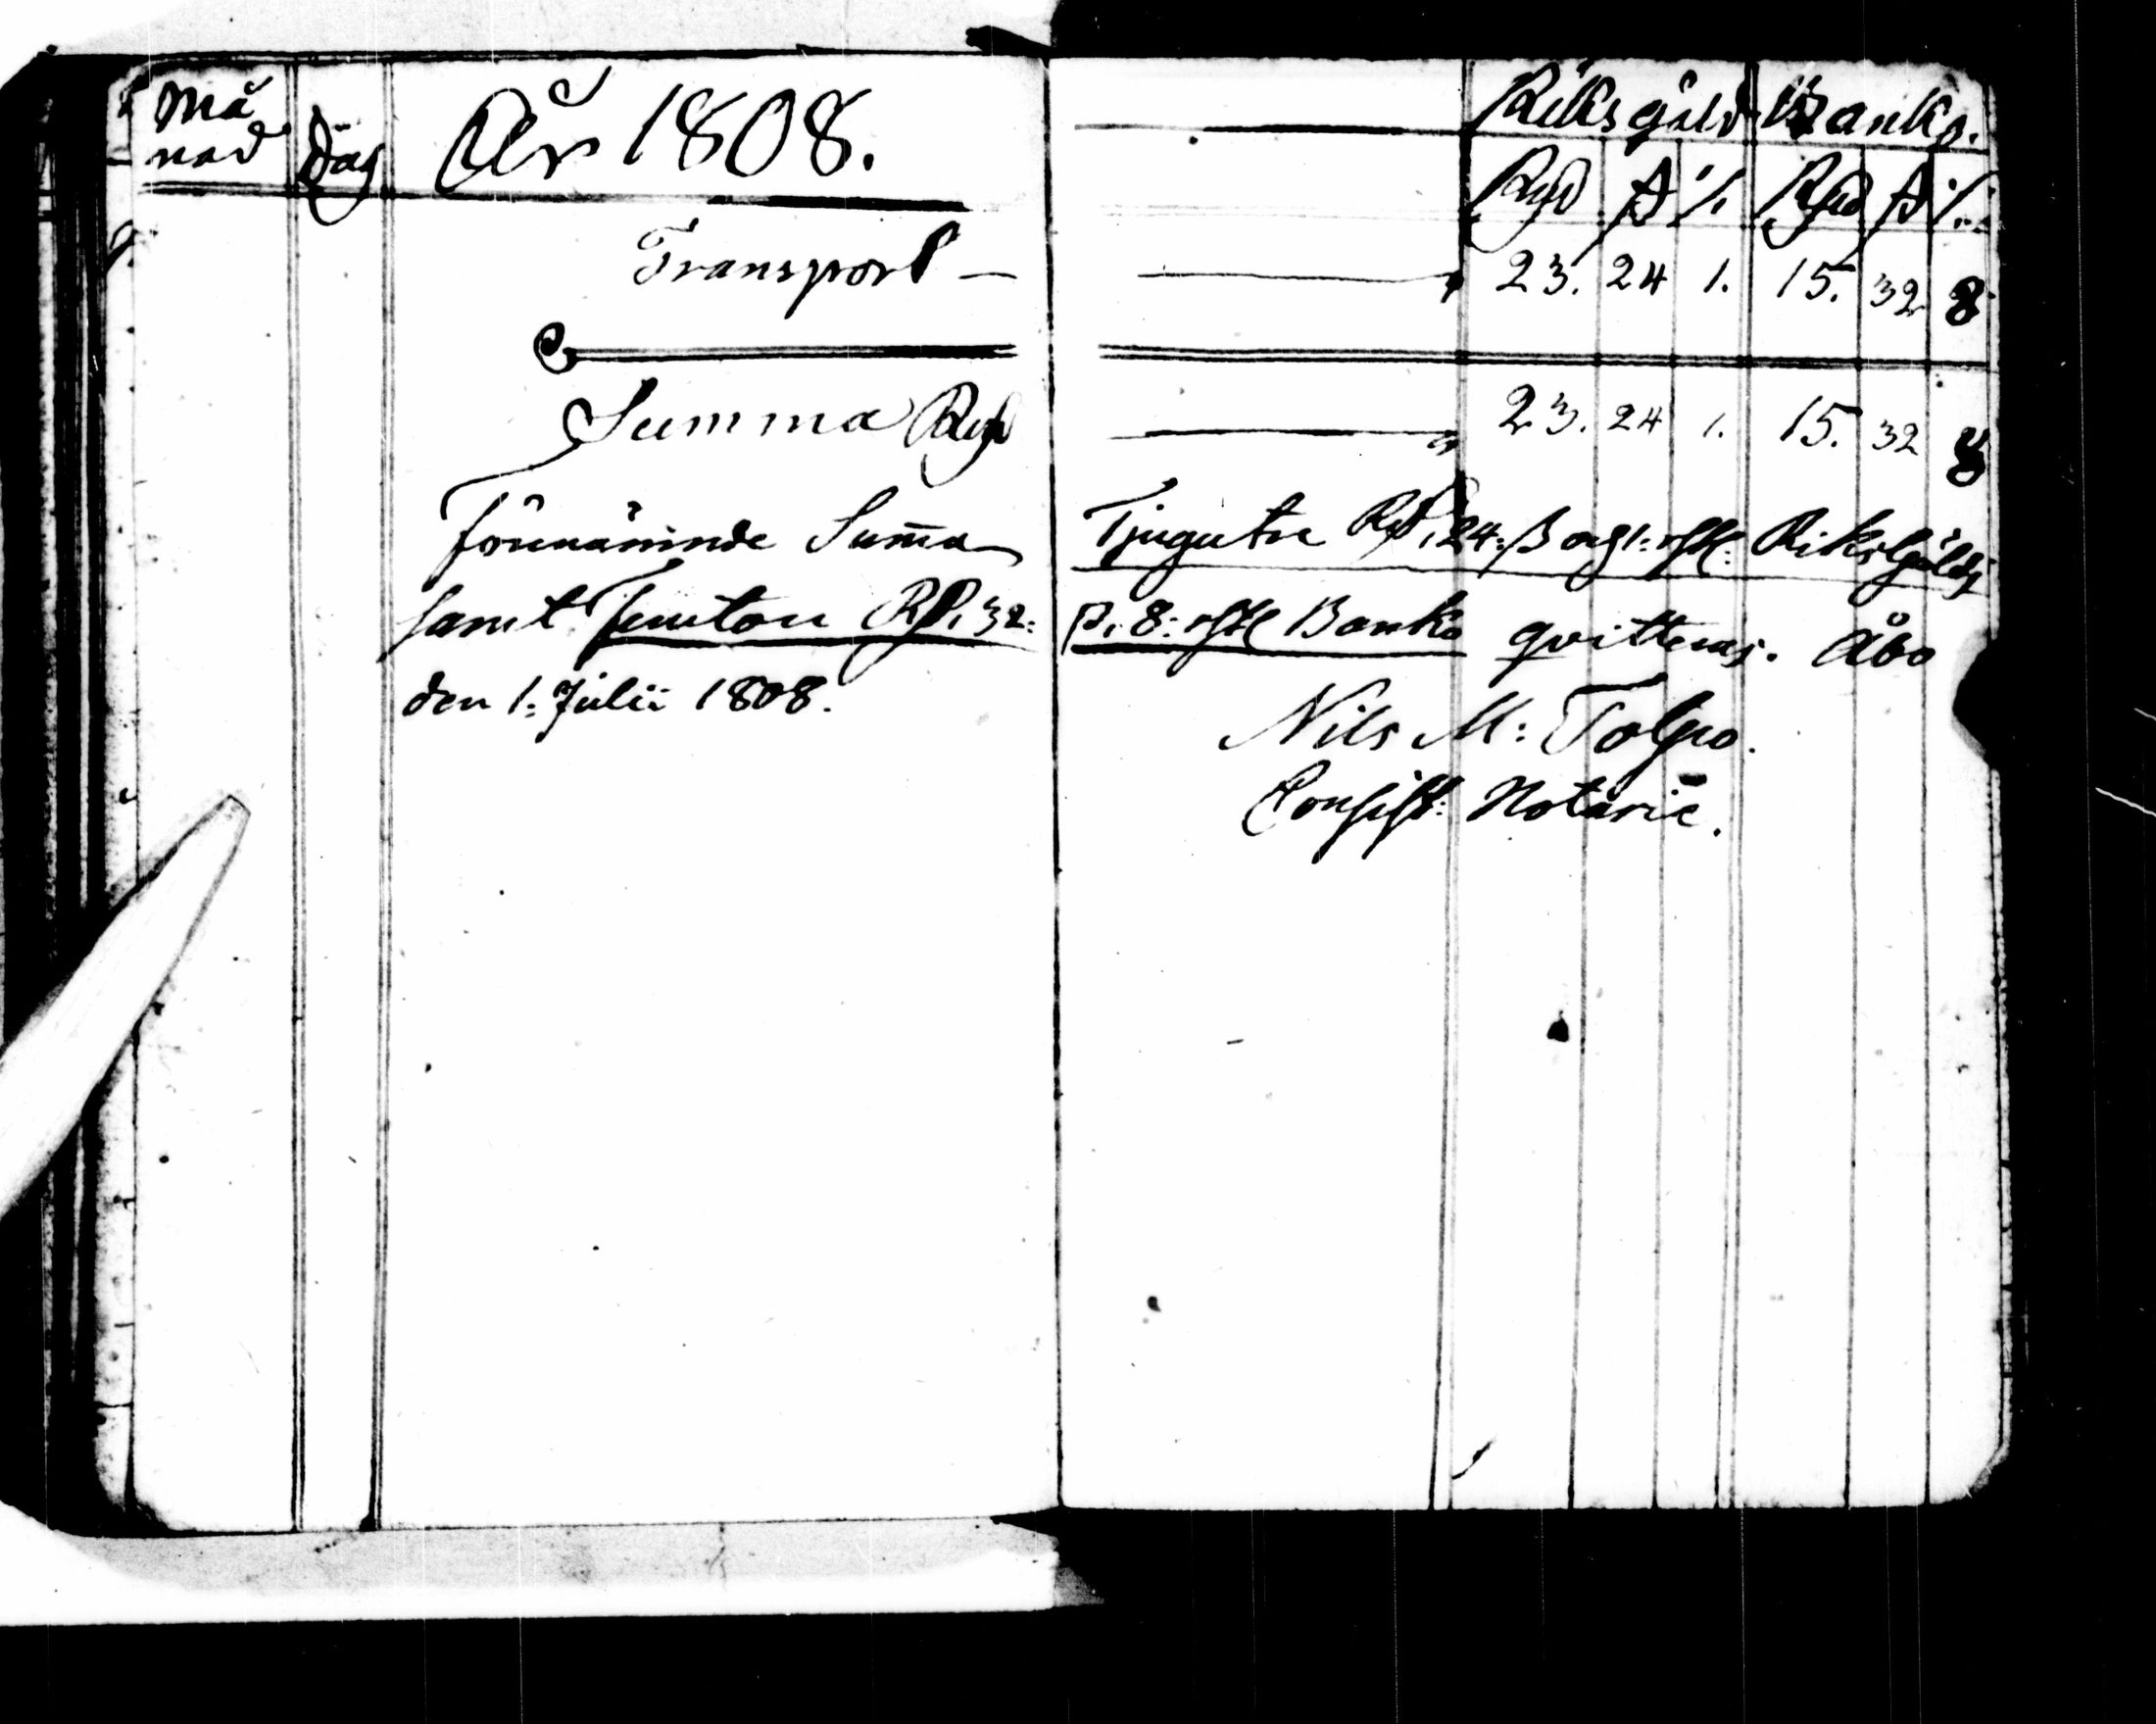 Må
nad Dag År 1808. Riksgäld Banko.
Rgd ß /. Rgd ß /.
Transport — 23. 24 1. 15. 32 8
Summa Rgd 23. 24 1. 15. 32 8
Förenämnde Sum̄a Tjugutre Rd, 24: ß och 1: rst: Riksgälds
samt Femton Rd, 32: ß, 8: rst Banko qvitteras. Åbo
den 1: Julii 1808.
Nils M: Tolpo.
Consist: Notarie.